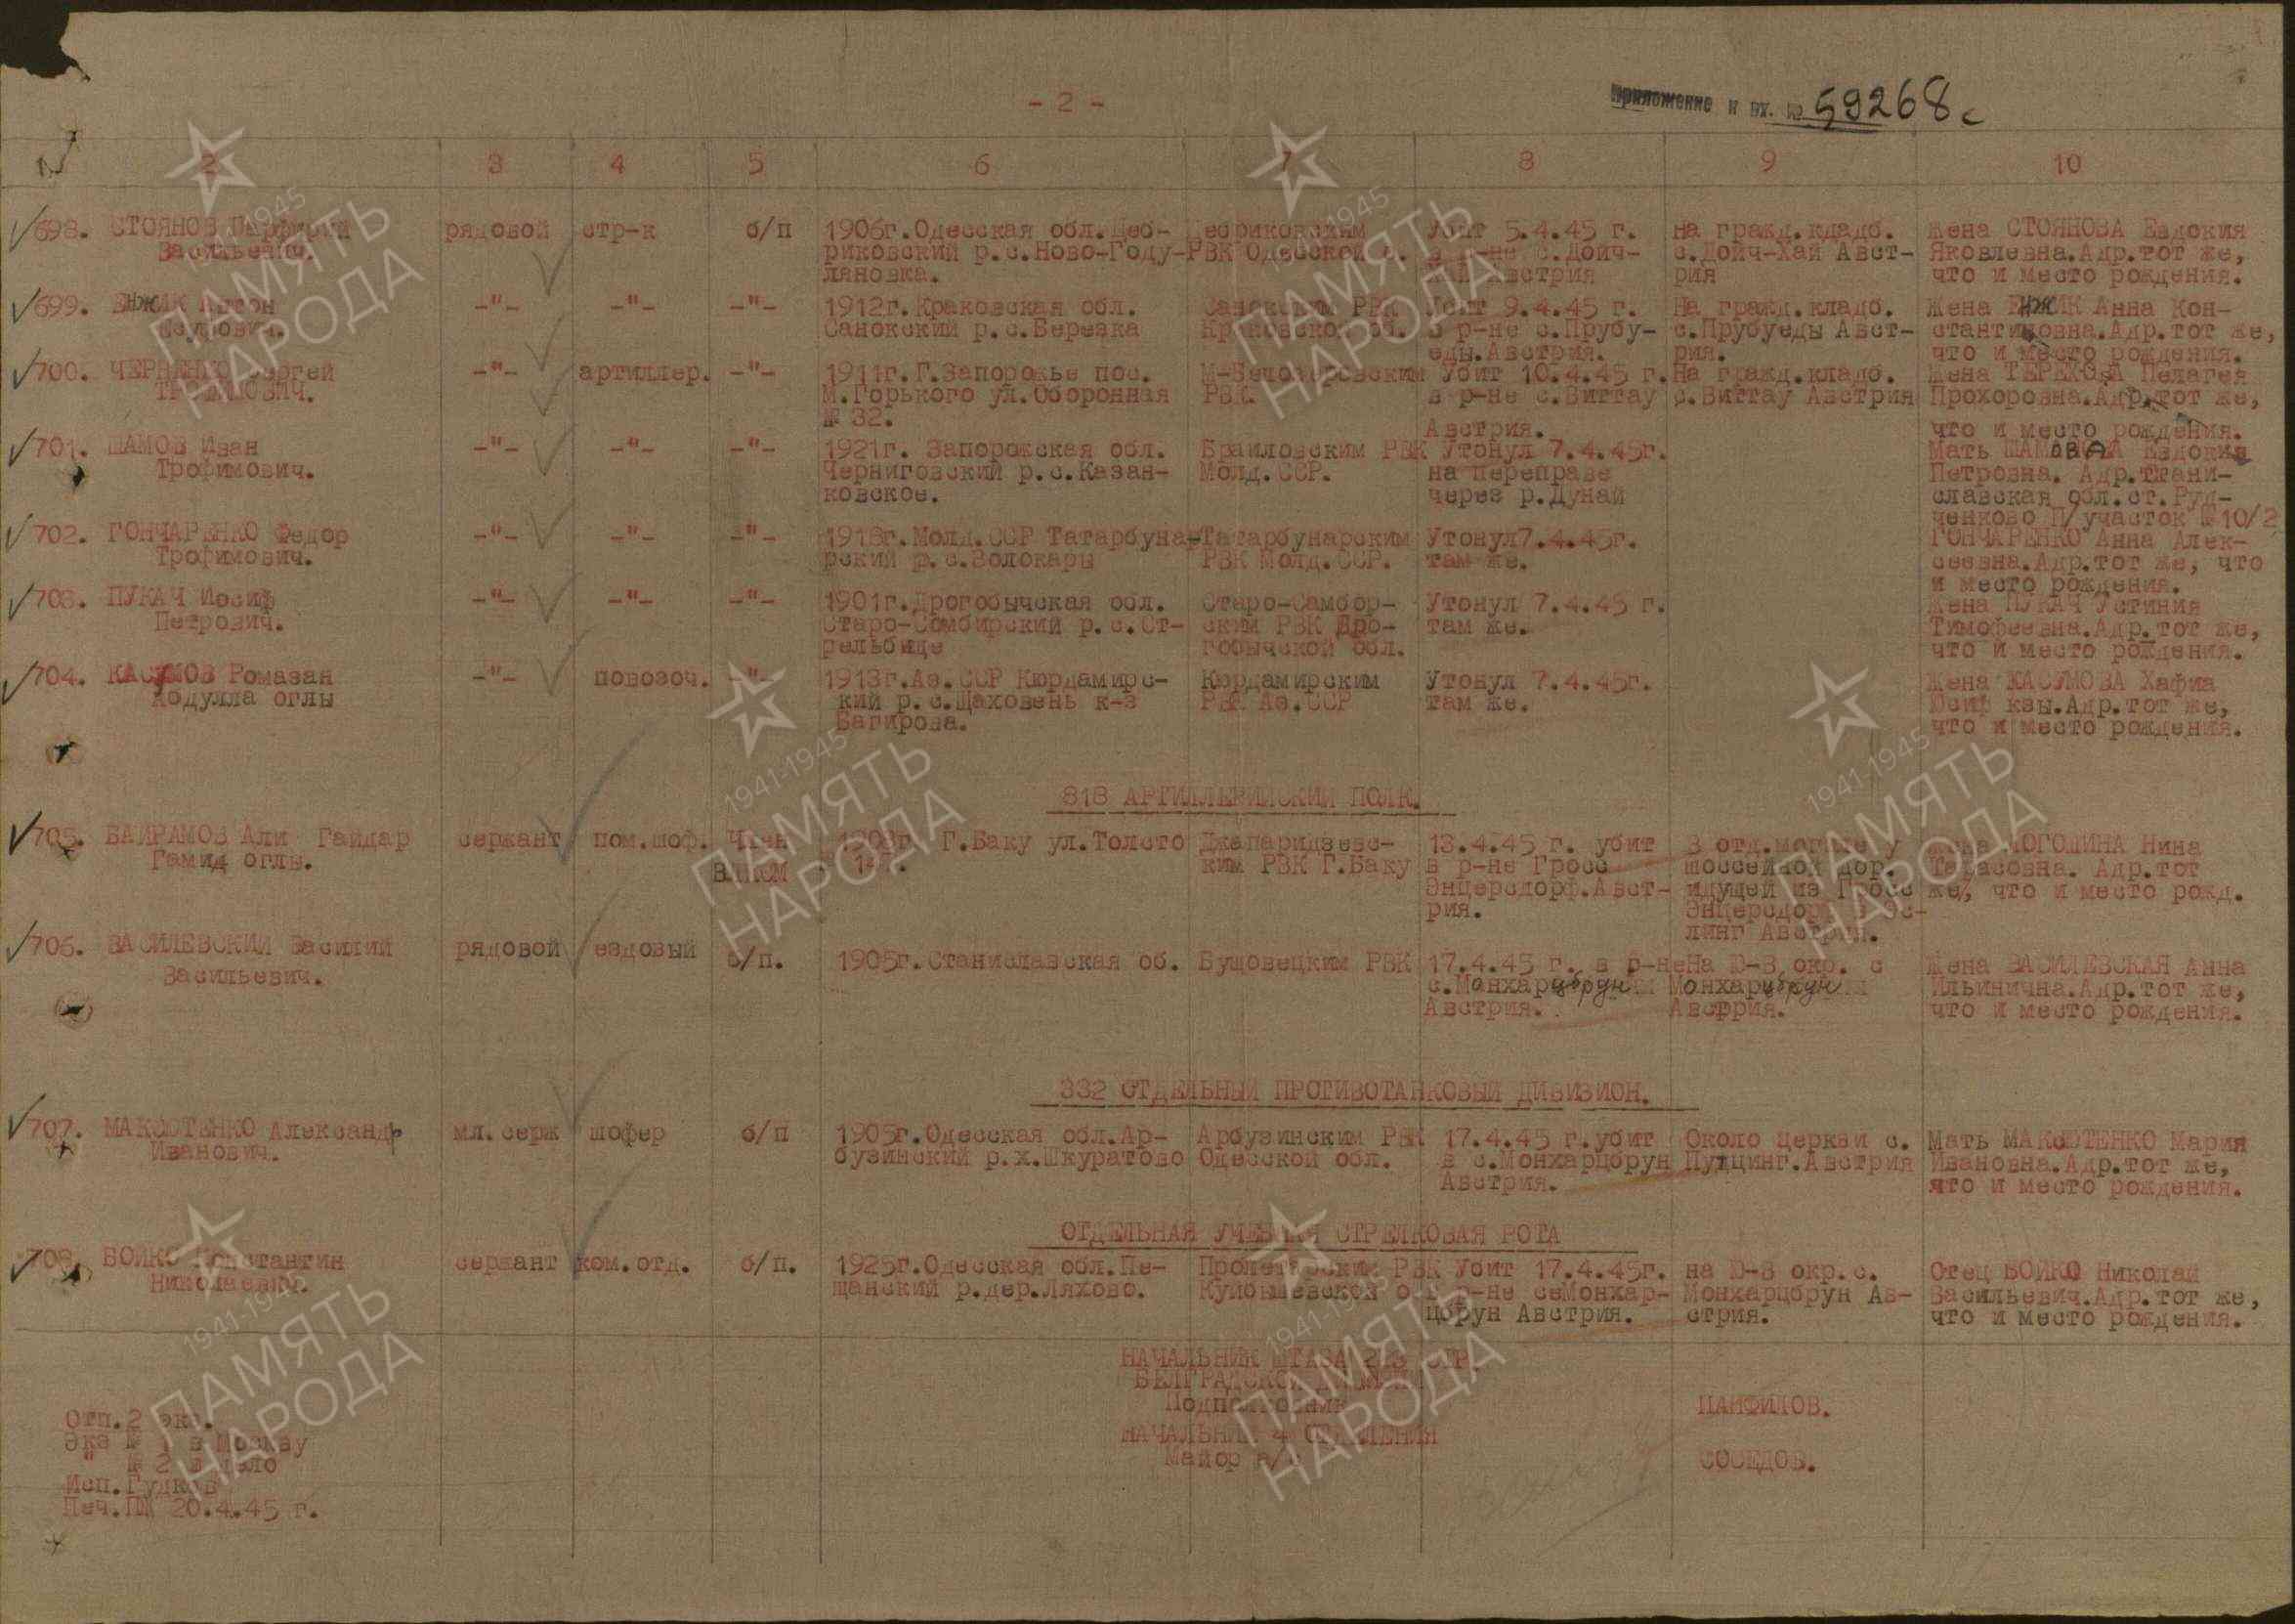 - 2 -
Приложение к вх. № 59268с
2 3 4 5 6 7 8 9 10
698. СТОЯНОВ Парфирий рядовой стр-к б/п 1906г.Одесская обл.Цеб- Цебриковским Убит 5.4.45 г. на гражд.кладб. Жена СТОЯНОВА Евдокия
Васильевич. риковский р.с.Ново-Году- РВК Одесской о. в р-не с.Дойч- с.Дойч-Хай Авст- Яковлевна.Адр.тот же,
ляновка. Хай Австрия рия что и место рождения.
699. ЕНЖИК Антон -"- -"- -"- 1912г.Краковская обл. Санокским РВК Убит 9.4.45 г. На гражд.кладб. Жена ЕНЖИК Анна Кон-
Санокский р.с.Березка Краковской об. в р-не с.Прубу- с.Прубуеды Авст- стантиновна.Адр.тот же,
еды.Австрия. рия. что и место рождения.
700. Сергей -"- артиллер. -"- 1911г.Г.Запорожье пос. Убит 10.4.45 г. На гражд.кладб. Жена ТЕРЕХОВА Пелагея
М.Горького ул.Оборонная РВК. в р-не с.Виттау с.Виттау Австрия Прохоровна.Адр.тот же,
№ 32. Австрия. что и место рождения.
701. ШАМОВ Иван -"- -"- -"- 1921г. Запорожская обл. Браиловским РВК Утонул 7.4.45г. Мать ШАМОВА Евдокия
Трофимович. Черниговский р.с.Казан- Молд.ССР. на переправе Петровна. Адр.
ковское. через р.Дунай славская обл.ст.Руд-
ченково П/участок №10/2
702. ГОНЧАРЕНКО Федор -"- -"- -"- 1918г.Молд.ССР Татарбуна- Татарбунарским Утонул7.4.45г. ГОНЧАРЕНКО Анна Алек-
Трофимович. рский р.с.Волокары РВК Молд.ССР. там же. сеевна.Адр.тот же, что
и место рождения.
703. ПУКАЧ Иосиф -"- -"- -"- 1901г.Дрогобычская обл. Старо-Самбор- Утонул 7.4.45 г. Жена ПУКАЧ Устиния
Петрович. Старо-Сомбирский р.с.Ст- ским РВК Дро- там же. Тимофеевна.Адр.тот же,
рельбице гобычской обл. что и место рождения.
704. КАСУМОВ Ромазан -"- повозоч. -"- 1913г.Аз.ССР Кюрдамирс- Кюрдамирским Утонул 7.4.45г. Жена КАСУМОВА Хафиа
Абдулла оглы кий р.с.Щаховень к-з РВК Аз.ССР там же. Юсиф кзы.Адр.тот же,
Багирова. что и место рождения.
818 АРТИЛЛЕРИЙСКИЙ ПОЛК.
705. БАЙРАМОВ Али Гайдар сержант пом.шоф. Член 1903г. Г.Баку ул.Толсто Джапаридзевс- 13.4.45 г. убит В отд.могиле у Жена ПОГОДИНА Нина
Гамид оглы. ВЛКСМ 147. ким РВК Г.Баку в р-не Гросс шоссейной дор. Тарасовна. Адр.тот
Энцерсдорф.Авст- идущей из Гросс же, что и место рожд.
рия. Энцерсдорф в Эс-
линг Австрия.
706. ВАСИЛЕВСКИЙ Василий рядовой ездовый б/п. 1905г.Станиславская об. Бущовецким РВК 17.4.45 г. в р-не На Ю-В окр. с Жена ВАСИЛЕВСКАЯ Анна
Васильевич. с.Монхарцбрун Монхарцбрун Ильинична.Адр.тот же,
Австрия. Авсррия. что и место рождения.
332 ОТДЕЛЬНЫЙ ПРОТИВОТАНКОВЫЙ ДИВИЗИОН.
707. МАКСЮТЕНКО Александр мл.серж шофер б/п 1905г.Одесская обл.Ар- Арбузинским РВК 17.4.45 г.убит Около церкви с. Мать МАКСЮТЕНКО Мария
Иванович. бузинский р.х.Шкуратово Одесской обл. в с.Монхарцбрун Путцинг.Австрия Ивановна.Адр.тот же,
Австрия. что и место рождения.
ОТДЕЛЬНАЯ УЧЕБНАЯ СТРЕЛКОВАЯ РОТА
708. БОЙКО Константин сержант ком.отд. б/п. 1925г.Одесская обл.Пе- Пролетарским РВК Убит 17.4.45г. на Ю-В окр.с. Отец БОЙКО Николай
Николаевич. щанский р.дер.Ляхово. Куйбышевской о. в р-не сеМонхар- Монхарцбрун Ав- Васильевич.Адр.тот же,
цбрун Австрия. стрия. что и место рождения.
НАЧАЛЬНИК ШТАБА СТР.
БЕЛГРАДСКОЙ ДИВИЗИИ
Подполковник ПАНФИЛОВ.
НАЧАЛЬНИК 4 ОТДЕЛЕНИЯ
Майор а/с СОСЕДОВ.
Отп.2 экз.
Экз № 1 в Москву
" № 2 в дело
Исп.Гудков
Печ.ПЖ 20.4.45 г.
1941-1945
ПАМЯТЬ
НАРОДА